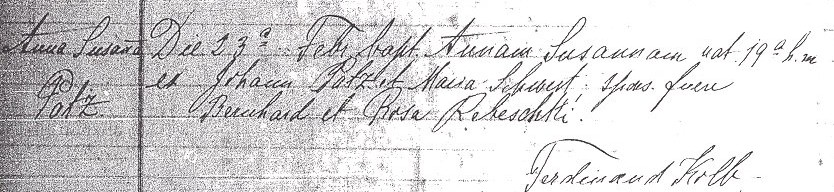 Anna Susana Die 23ª Febr bapt. Annam Susannam nat 19ª h. m
ex Johann Patz et Maria Schwest spons. fuere
Patz Bernhard et Rosa Rebeschki.
Ferdinand Kolb